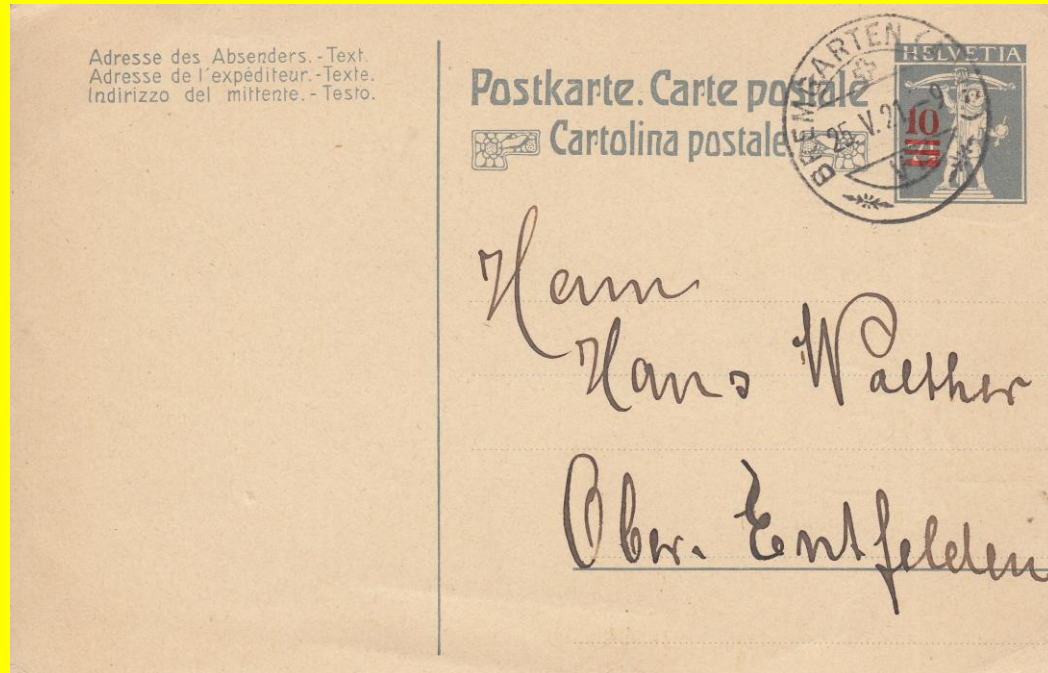 Adresse des Absenders.-Text.
Adresse de l'expéditeur.-Texte.
Indirizzo del mittente.-Testo.
Postkarte. Carte postale
Cartolina postale
HELVETIA
10
BREMGARTEN
25.V.21.-9
Herrn
Hans Walther
Ober. Entfelden